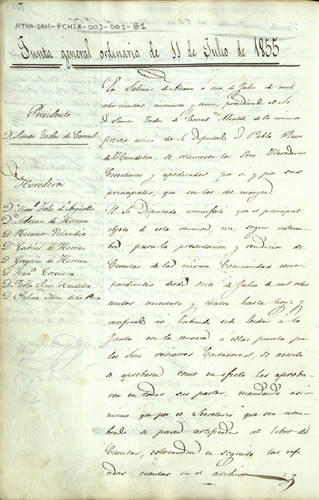 ATHA-DAH-FCHSA-003-001-81
Junta general ordinaria de 11 de Julio de 1855
Presidente
D. Simon Trados de Corral
Herederos
D. Man.l Velez de Arguelles
D. Adrian de Herran
D. Becerro Velandia
D. Gabriel de Herran
D. Gregorio de Herran
D. Fran.co Corcuera
D. Pablo Ruiz Huidobro
D. Felix de la
En Salinas de Añana a once de Julio de mil
ochocientos cincuenta y cinco, presidiendo el Sr
D. Simon Trados de Corral Alcalde de la misma
previo aviso de su Diputado D. Pablo Ruiz
de Huidobro, se reunieron los Sres Herederos
Caballeros y apoderados por si y por sus
principales, que constan del margen.
El Sr Diputado manifestó que el principal
objeto de esta reunion era, segun costum
bre para la presentacion y rendicion de
Cuentas de la misma Comunidad corres
pondientes desde once de Julio de mil ocho
cientos cincuenta y cuatro hasta hoy; y
verificado asi habiendo sido leidas a la
Junta con la censura a ellas puesta por
los Sres revisores Contadores, se acordó
su aprobacion como en efecto las aproba
ron en todas sus partes, mandando asi
mismo que por el Secretario que sea nom
brado se pasará certificado al libro de
Cuentas, colocandose en seguida las refe
ridas cuentas en el archivo